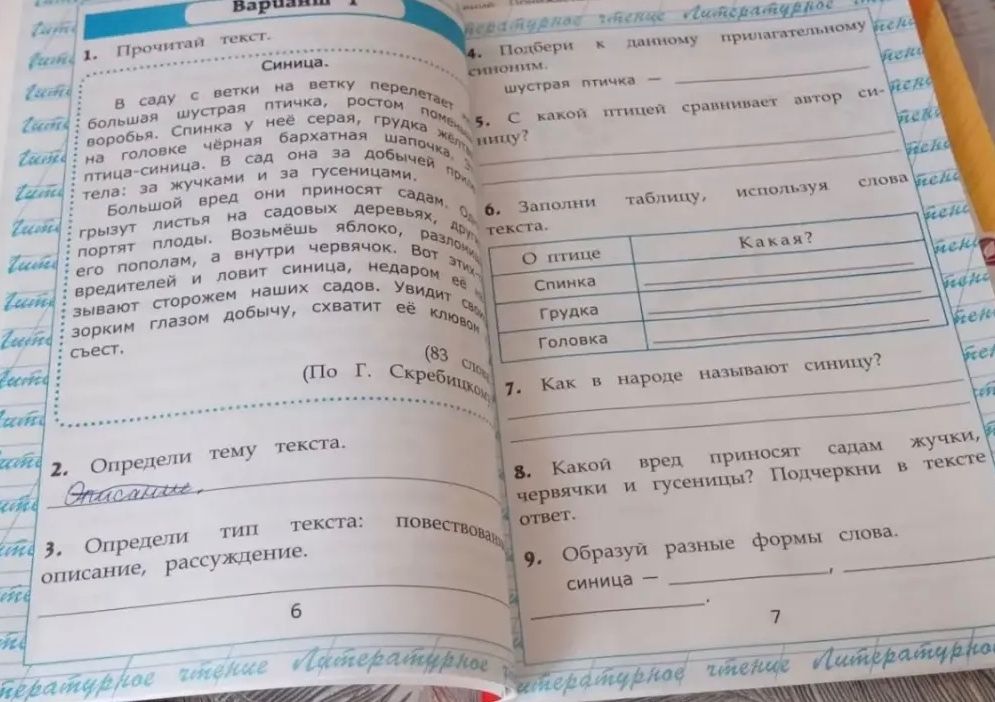 Вариант 1
1. Прочитай текст.
Синица.
В саду с ветки на ветку перелетает
большая шустрая птичка, ростом
воробья. Спинка у неё серая, грудка
на головке чёрная бархатная шапочка.
птица-синица. В сад она за добычей
тела: за жучками и за гусеницами.
Большой вред они приносят садам.
грызут листья на садовых деревьях,
портят плоды. Возьмёшь яблоко,
его пополам, а внутри червячок. Вот
вредителей и ловит синица, недаром её
зывают сторожем наших садов. Увидит
зорким глазом добычу, схватит её клювом
съест.
(83
(По Г.
2. Определи тему текста.
Описание,
3. Определи тип текста:
описание, рассуждение.
6
4. Подбери к данному прилагательному
синоним.
шустрая птичка —
5. С какой птицей сравнивает автор си-
ницу?
6. Заполни таблицу, используя слова
текста.
О птице Какая?
Спинка
Грудка
Головка
7. Как в народе называют синицу?
8. Какой вред приносят садам жучки,
червячки и гусеницы? Подчеркни в тексте
ответ.
9. Образуй разные формы слова.
синица — , .
7
чтение Литературное
чтение Литературное